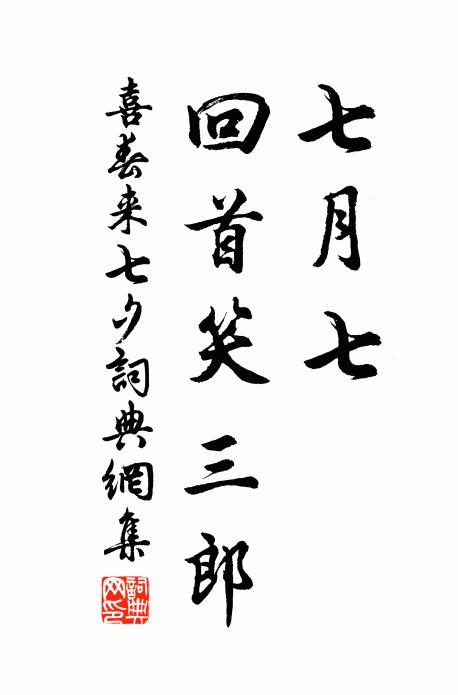 七月七
回首笑三郎
喜春来七夕詞典網集
詞典網印